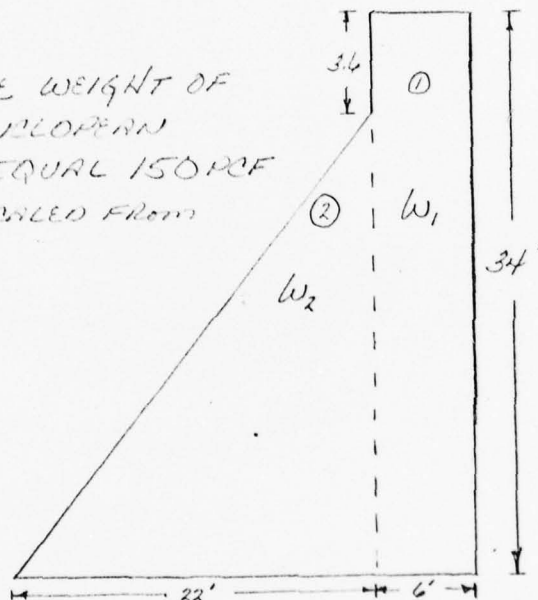 E WEIGHT OF
CLOPEAN
EQUAL 150 PCF
CALED FROM
3.6
①
②
W₁
W₂
34'
22'
6'